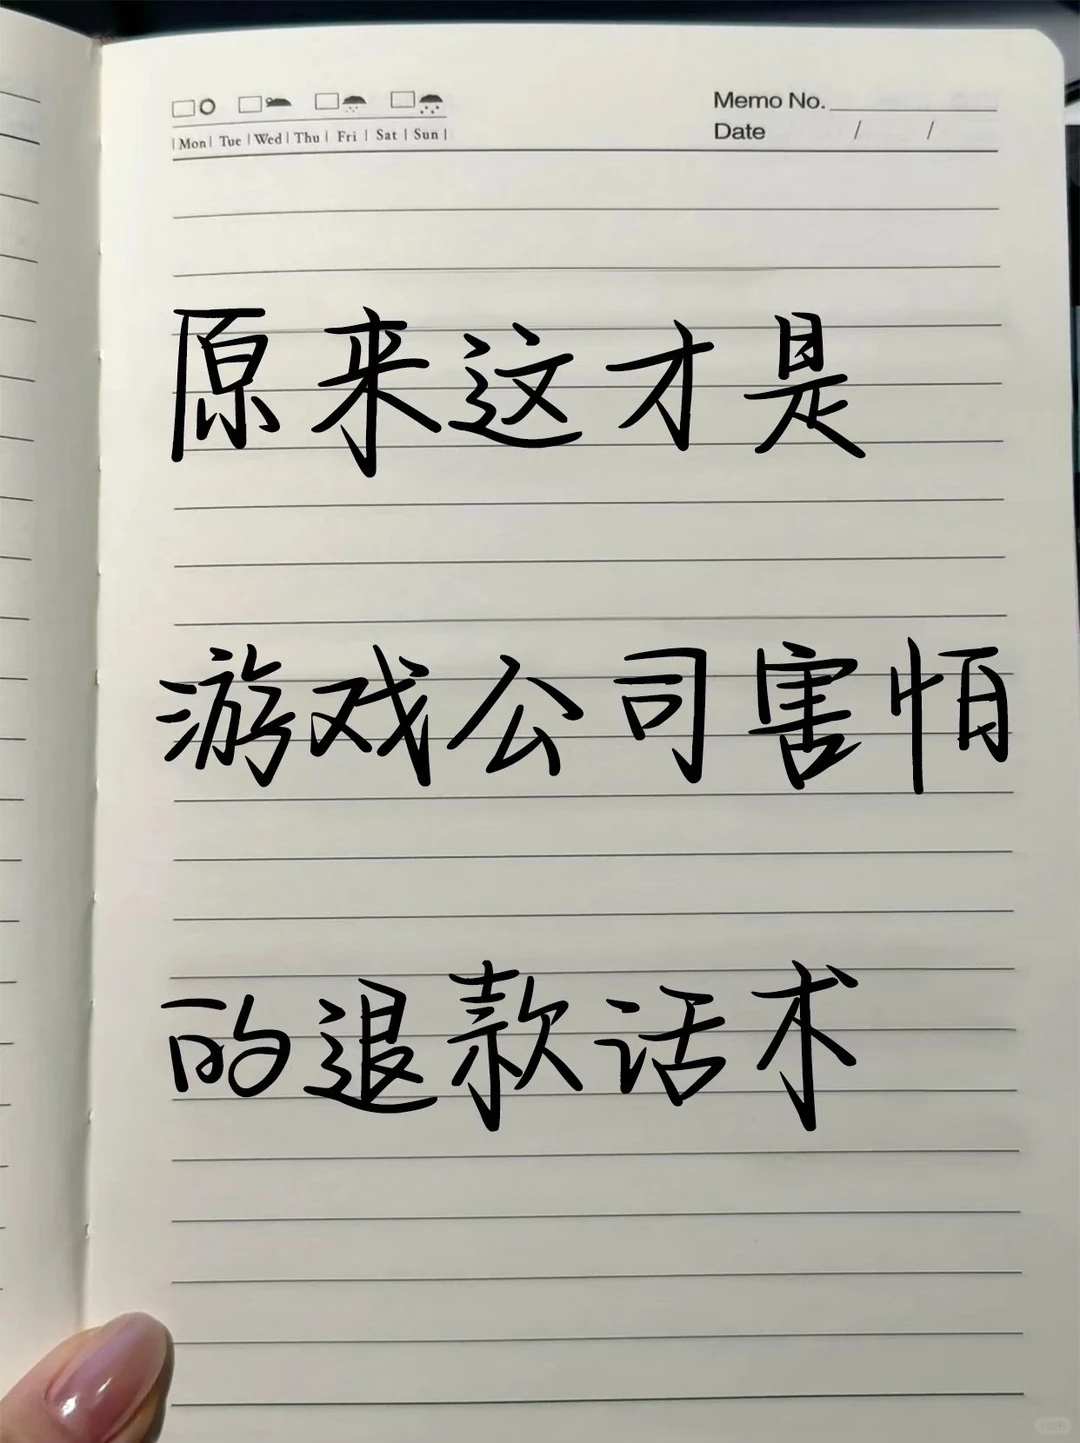 Memo No.
Mon Tue Wed Thu Fri Sat Sun
Date / /
原来这才是
游戏公司害怕
的退款话术
小红书